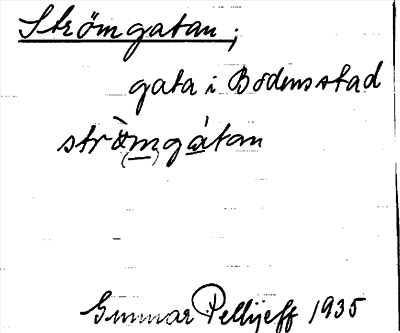 Strömgatan;
gata i Bodens stad
strö̀(m)gátan
Gunnar Pellijeff 1935